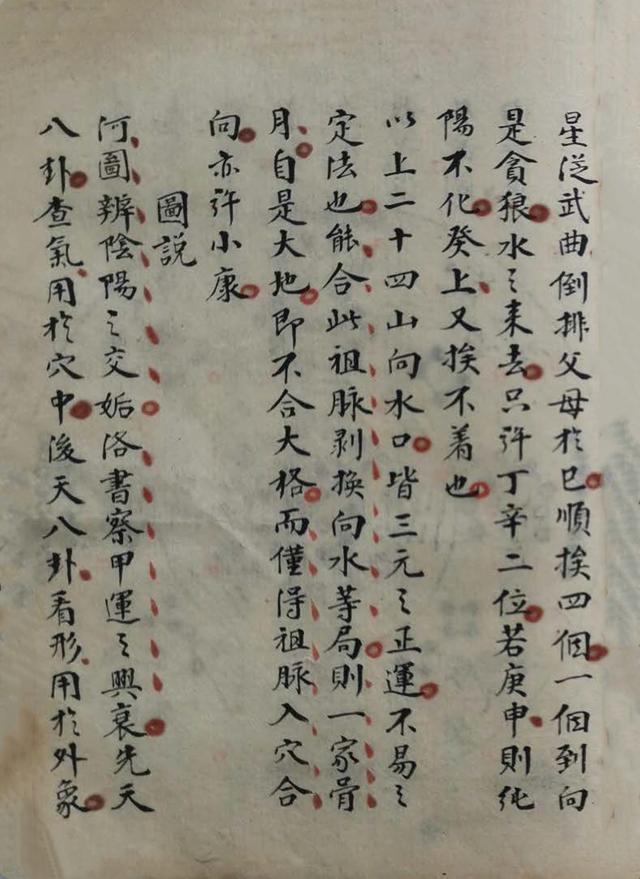 星從武曲倒排父母於巳順挨四個一個到向
是貪狼水之来去只許丁辛二位若庚申則純
陽不化癸上又挨不着也
以上二十四山向水口皆三元之正運不易之
定法也能合此祖脉剥換向水等局則一家骨
月自是大地即不合大格而僅得祖脉入穴合
向亦許小康
圖説
河圖辨陰陽之交姤洛書察甲運之興衰先天
八卦查氣用於穴中後天八卦看形用於外象